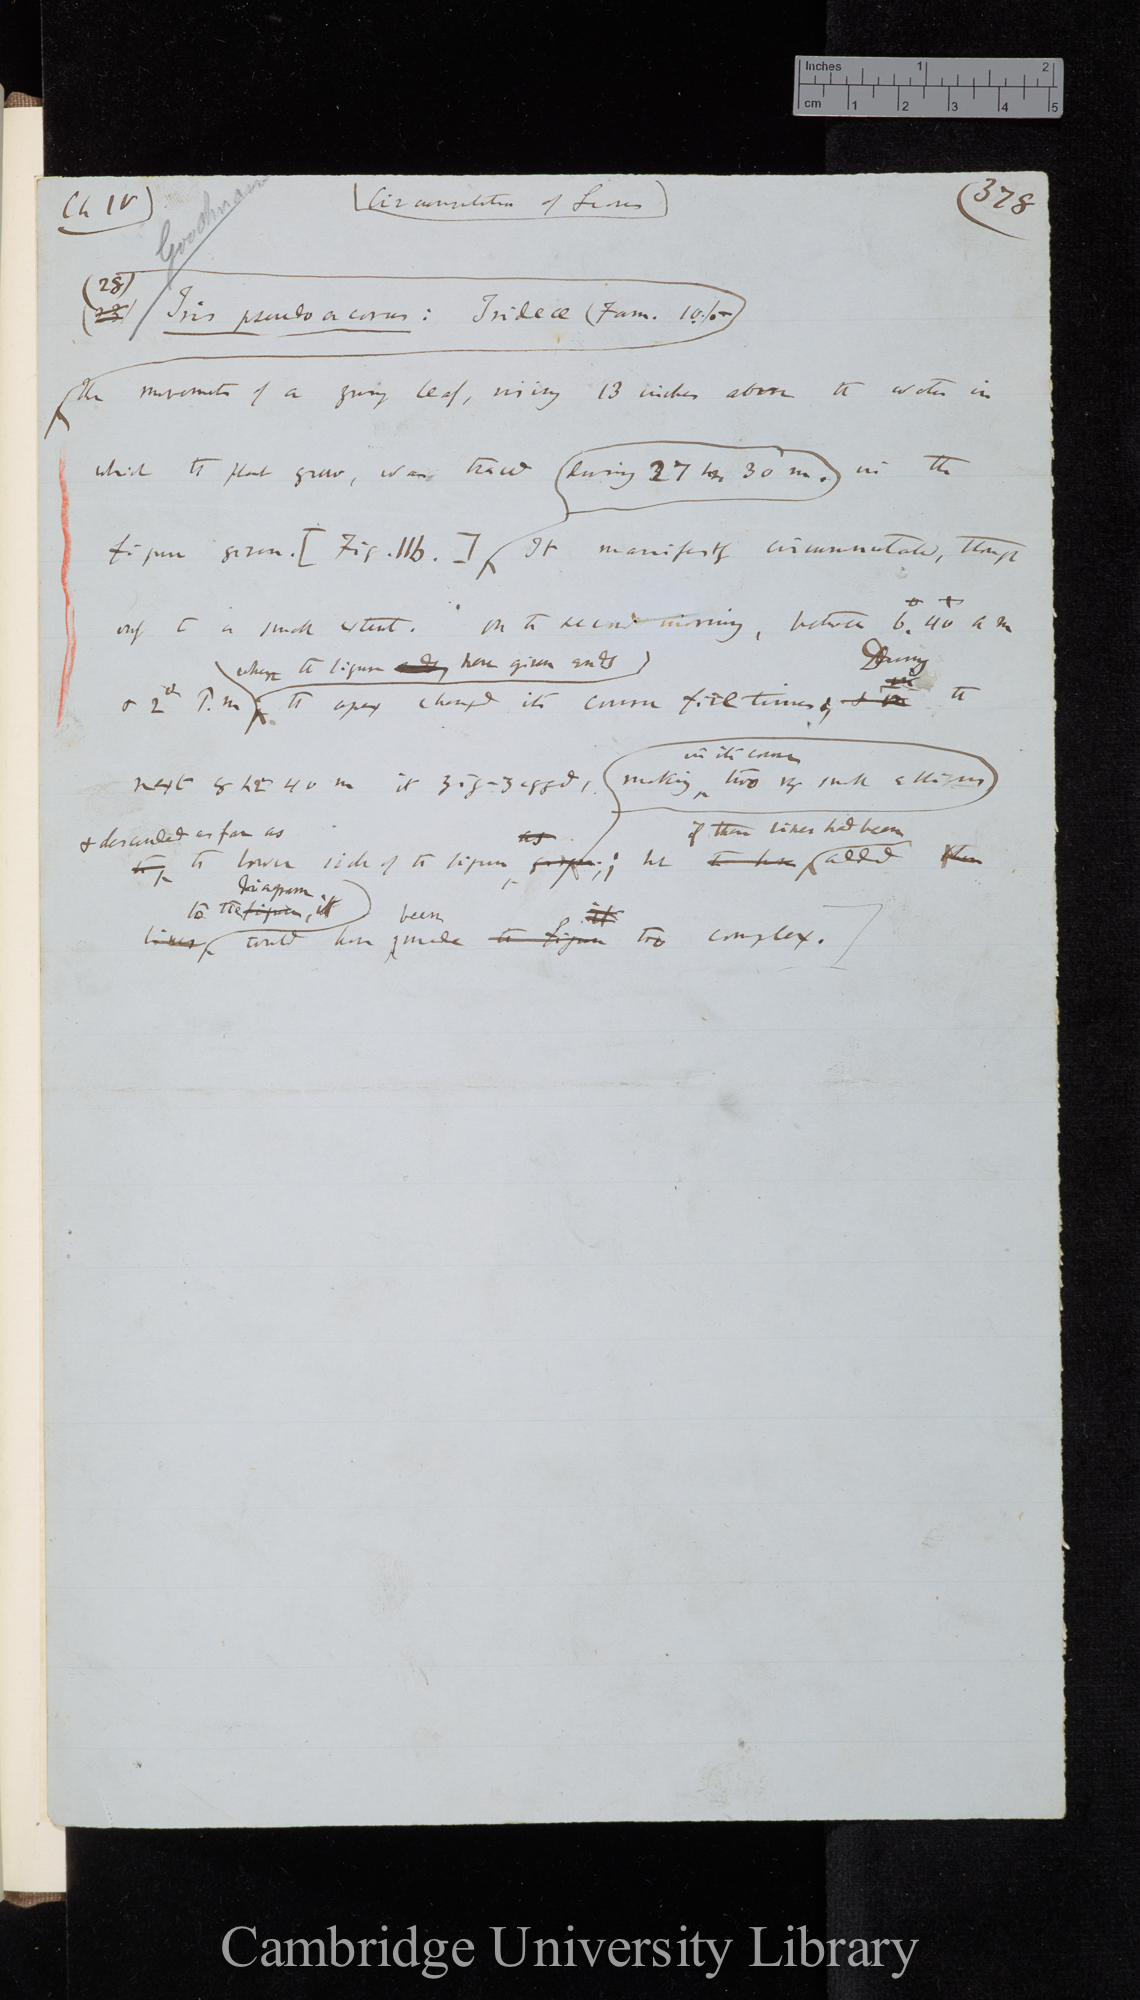 Inches 1 2
cm 1 2 3 4 5
Ch IV)
Goodman
Circumnutation of Leaves
(378
(28)
(28)
Iris pseudo acorus: Irideæ (Fam. 10.)
The movements of a young leaf, rising 13 inches above the water in
which the plant grew, was traced during 27 hrs 30 m. in the
figure given. [Fig. 116.] It manifestly circumnutated, though
only to a small extent. On the second morning, between 6. 40 a m
where the figure here given ends) During
& 2d P.m the apex changed its course five times; & in the
in its course
next 8 hrs 40 m it zig-zagged, making two small ellipses
& descended as far as as if these lines had been
the lower side of the figure given; but to have added these
to the diagram figure, it been it
lines would have made the figure too complex.]
Cambridge University Library